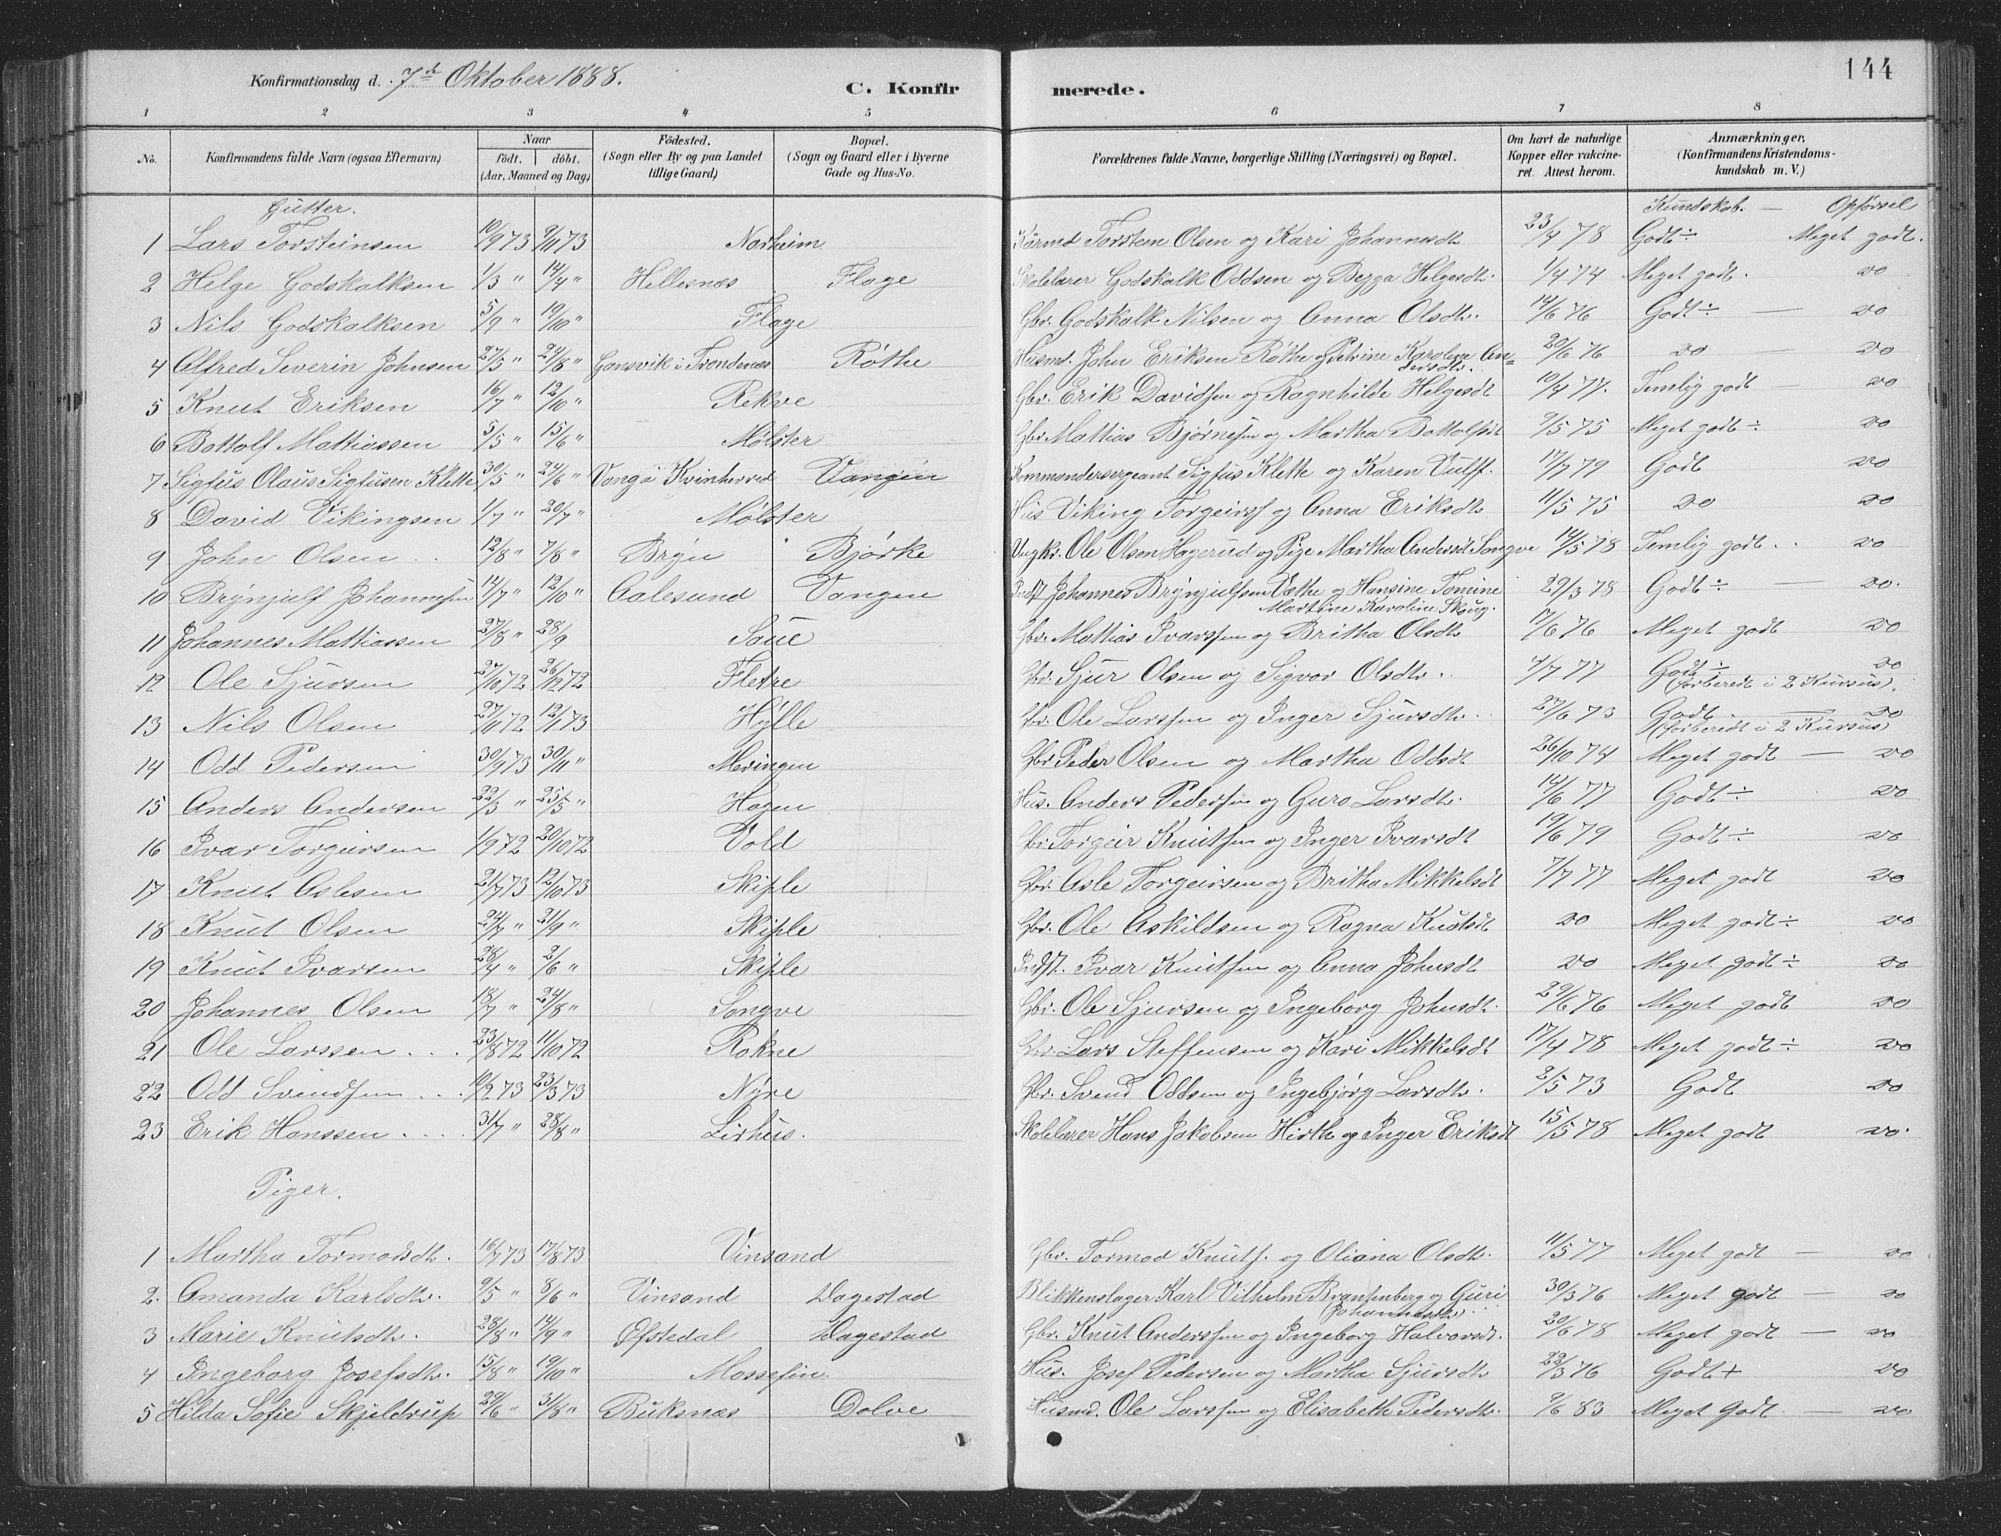 144
Konfirmationsdag d. 7de Oktober 1888.
C. Konfirmerede.
1 2 3 4 5 6 7 8
No. Konfirmandens fulde Navn (ogsaa Efternavn) Naar födt. döbt. (Aar, Maaned og Dag) Födested. (Sogn eller By og paa Landet tillige Gaard) Bopæl. (Sogn og Gaard eller i Byerne Gade og Hus-No. Forældrenes fulde Navne, borgerlige Stilling (Næringsvei) og Bopæl. Om havt de naturlige Kopper eller vakcineret. Attest herom. Anmærkninger, (Konfirmandens Kristendomskundskab m. V.)
Gutter. Kundskab. — Opførsel
1 Lars Torsteinsen 10/9 73 9/11 73 Norheim Torsten Olsen og Kari Johannesdt. 23/4 78 Godt ÷ Meget godt.
2 Helge Godskalksen 1/3 " 14/4 " Hellesnæs Flage Skolelærer Godskalk Oddsen og Begga Helgesdt. 1/4 74 Meget godt. do
3 Nils Godskalksen 5/9 " 19/10 " Flage Gbr. Godskalk Nilsen og Anna Olsdt. 14/6 76 Godt ÷ — do
4 Alfred Severin Johnsen 27/5 " 24/8 " Gansvik i Trondenæs Røthe Husmd. John Eriksen Røthe og Petrine Karoline Andersdt. 20/6 76 do — do
5 Knut Eriksen 16/7 " 12/10 " Rekve Gbr. Erik Davidsen og Ragnhilde Helgesdt 10/4 77. Temlig godt — do
6 Bottolf Mattiassen 5/5 " 15/6 " Mølster Gbr. Mattias Bjørnesen og Martha Bottolfsdt 9/5 75 Meget godt ÷ do
7 Sigfus Olaus Sigfusen Klette 30/5 " 24/6 " Kvinherred Vangen Kommandersergeant Sigfus Klette og Karen Vulff. 17/7 79 Godt do
8 David Vikingsen 1/7 " 20/7 " Mølster Hus Viking Torgeirsf og Anna Eriksdt. 11/5 75 do do
9 John Olsen 12/8 " 7/8 " Bryn Bjørke Ungkr. Ole Olsen Hagerud og Pige Martha Andersdt Songve 14/5 78 Temlig godt. do
10 Brynjulf Johannesen 14/7 " 12/10 " Aalesund Vangen Indst Johannes Brynjulfsen Væthe og Hansine Tomine Martine Karoline Skoug. 29/3 78 Godt ÷ — do.
11 Johannes Mattiassen 27/8 " 28/9 Saue Gbr. Mattias Ivarsen og Britha Olsdt. 17/6 76 Meget godt do
12 Ole Sjursen 27/10 72 26/12 72 Fletre Gbr. Sjur Olsen og Sigvor Olsdt. 4/7 77 Godt ÷ do (forberedt i 2 Kursus).
13 Nils Olsen 27/11 72 12/1 73 Hylle Gbr. Ole Larssen og Inger Sjursdt. 27/6 73 Godt — do (forberedt i 2 Kursus)
14 Odd Pedersen 30/9 73 30/11 " Mæringen Gbr. Peder Olsen og Martha Oddsdt 26/10 74 Meget godt — do
15 Anders Andersen 22/3 " 25/5 " Hagen Hus. Anders Pedersen og Guro Larsdt. 14/6 77 Godt ÷ do
16 Ivar Torgeirsen 1/9 72 20/10 72 Vold Gbr Torgeir Knutsen og Inger Ivarsdt 19/6 79 Godt ÷ do
17 Knut Aslesen 21/7 73 12/10 73 Skiple Gbr. Asle Torgeirsen og Britha Mikkelsdt 7/7 77 Meget godt do
18 Knut Olsen 24/7 " 21/9 " Skiple Gbr. Ole Askildsen og Ragna Knutsdt do Meget godt ÷ do
19 Knut Ivarsen 28/4 " 2/6 " Skiple Indst. Ivar Knutsen og Anna Johnsdt do Meget godt ÷ do
20 Johannes Olsen 18/7 " 24/8 " Songve Gbr. Ole Sjursen og Ingeborg Johnsdt. 29/6 76 Meget godt do
21 Ole Larssen 23/8 72 11/10 72 Rokne Gbr. Lars Steffensen og Kari Mikkelsdt 17/4 78 Meget godt ÷ do
22 Odd Svendsen 10/2 73 23/3 73 Nyre Gbr. Svend Oddsen og Ingebjørg Larsdt. 2/5 73 Godt do
23 Erik Hanssen 31/7 " 28/8 " Lirhus. Skolelærer Hans Jakobsen Hirth og Inger Eriksdt 15/5 78 Meget godt do.
Piger.
1 Martha Tormodsdt. 16/7 73 17/8 73 Vinsand Gbr. Tormod Knutf. og Oliana Olsdt. 11/5 77 Meget godt — do
2. Amanda Karlsdt. 9/5 " 8/6 " Vinsand Dagestad Blikkenslager Karl Vilhelm Brantenberg og Guri Johannesdt. 30/3 76 Meget godt — do
3 Marie Knutsdt. 28/8 " 14/9 " Øfstedal Dagestad Gbr. Knut Anderssen og Ingeborg Halvorsdt. 20/6 78 Meget godt — do
4 Ingeborg Josefsdt. 15/8 " 19/10 " Mossefin. Hus. Josef Pedersen og Martha Sjursdt. 22/3 76 Godt + do
5 Hilda Sofie Skjeldrup 29/6 " 31/8 " Buksnæs Dolve Husmd. Ole Larssen og Elisabeth Pedersdt. 9/6 83 Meget Godt — do